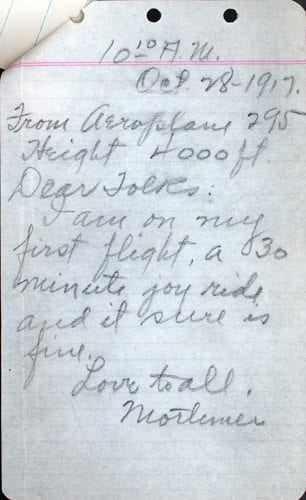 10¹⁰ A.M.
Oct. 28-1917.
From Aeroplane 295
Height 4000 ft.
Dear Folks:
I am on my
first flight, a 30
minute joy ride
and it sure is
fine.
Love to all,
Mortimer